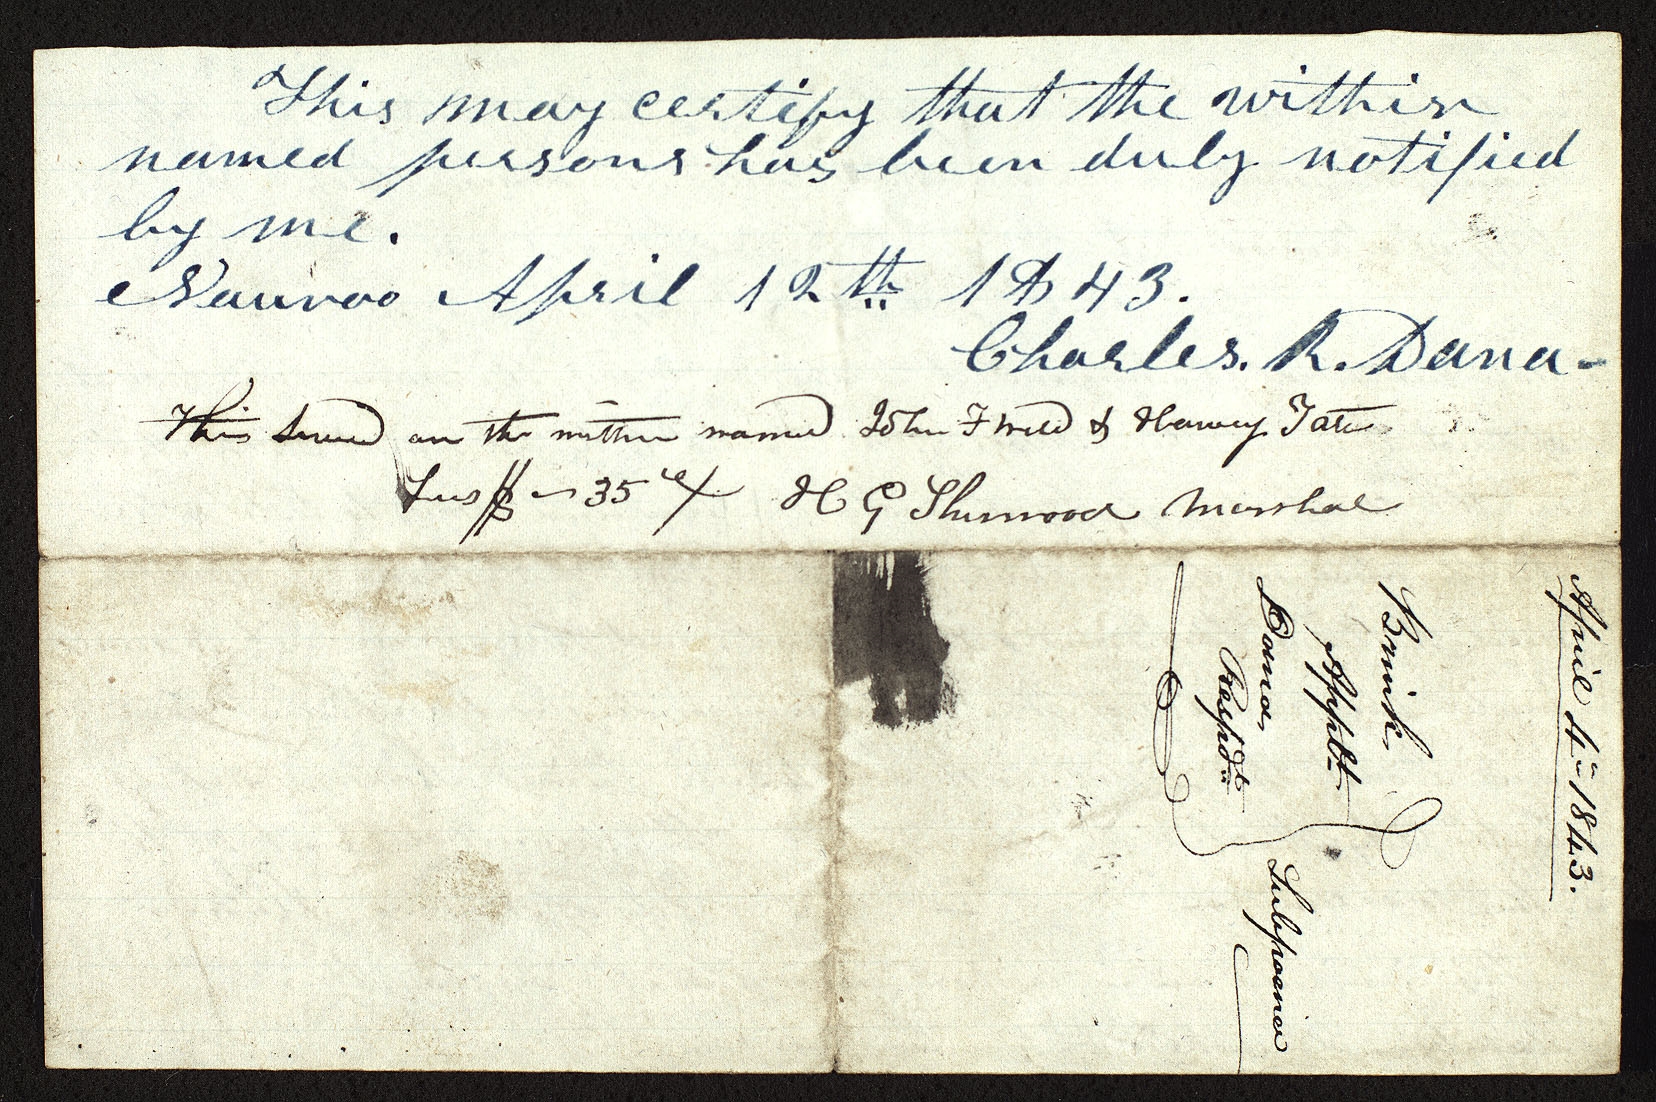 This may certify that the within
named persons has been duly notified
by me.
Nauvoo April 12th 1843.
Charles. R. Dana-
This served on the within named John F Weld & Harvey Tate
35 H G Sherwood Marshal
April 4 1843.
Brink,
Applt
Dana,
Respdt
Subpoena